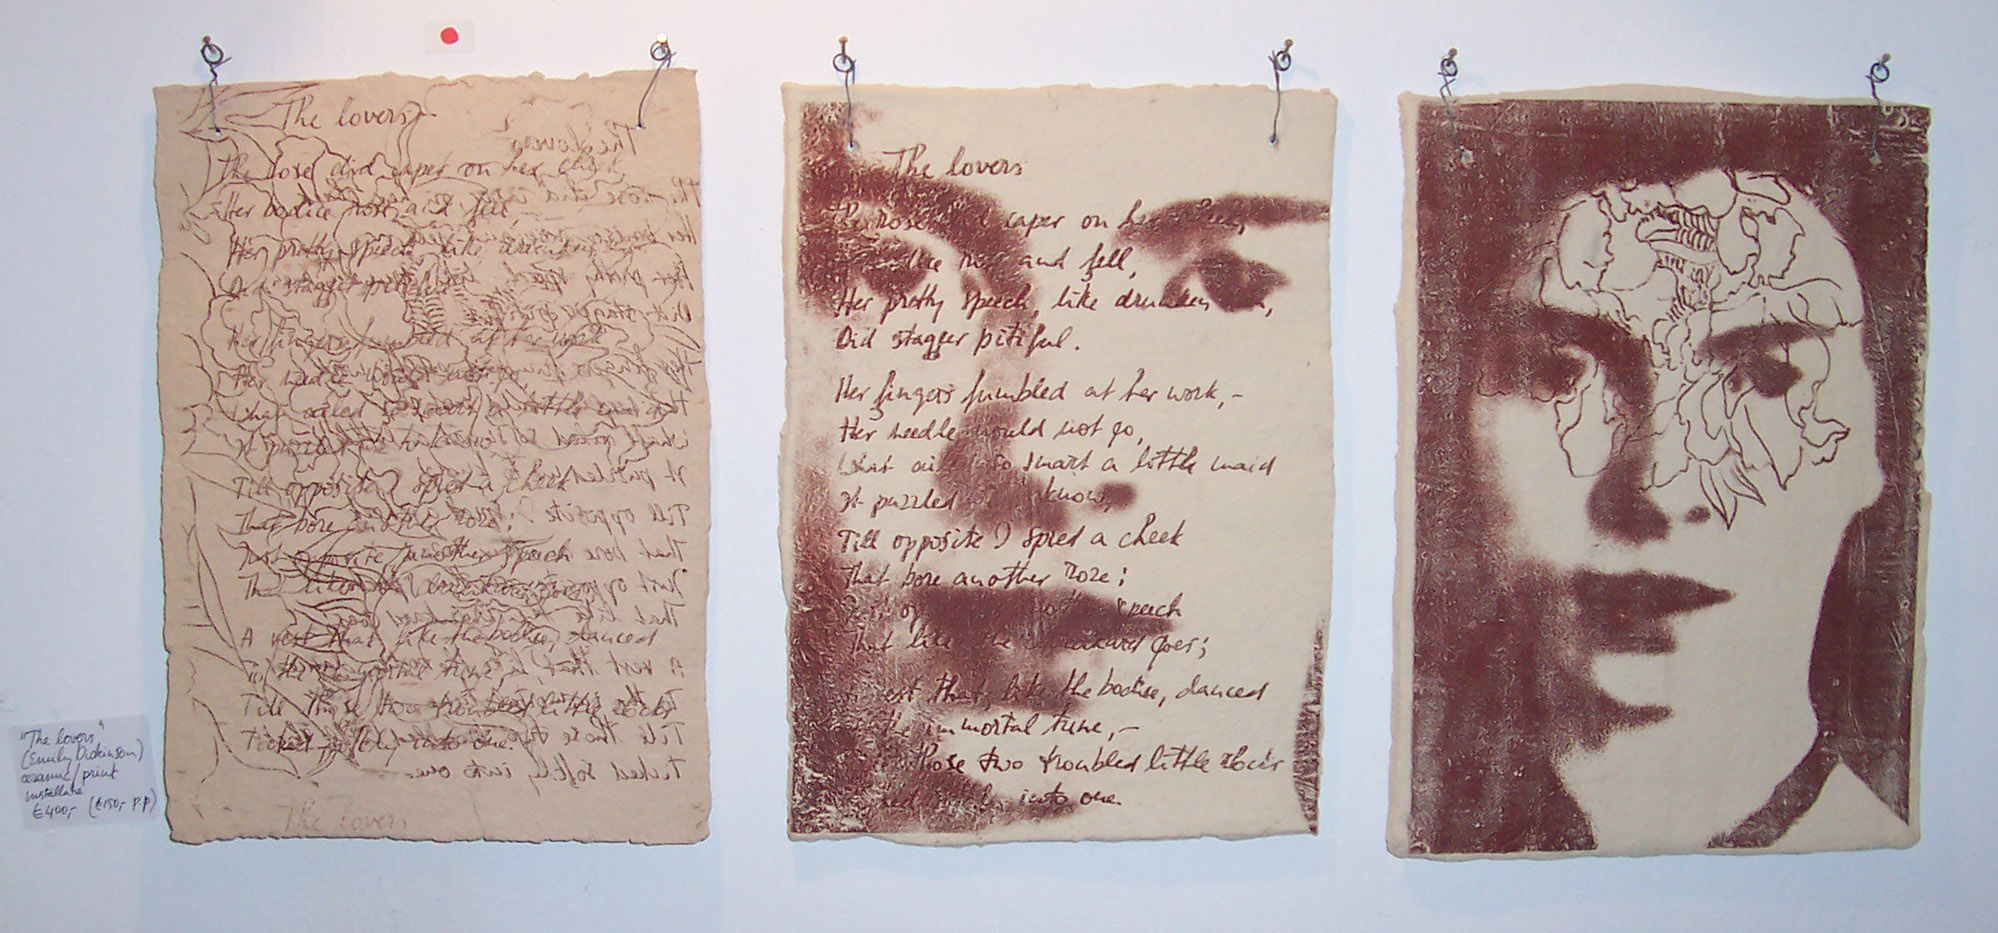 The lovers
The rose did caper on her cheek,
Her bodice rose and fell,
Her pretty speech, like drunken
Did stagger pitiful.
Her fingers fumbled at her work,-
Her needle would not go,
What ailed so smart a little maid
It puzzled me to know,
Till opposite I spied a cheek
That bore another rose;
Just opposite, another speech
That like the drunkard goes;
A vest that, like the bodice, danced
To the immortal tune,-
Till those two troubled little clocks
Ticked softly into one.
The lovers
The lovers
The rose did caper on her cheek,
Her bodice rose and fell,
Her pretty speech, like drunken men,
Did stagger pitiful.
Her fingers fumbled at her work,-
Her needle would not go,
What ailed so smart a little maid
It puzzled me to know,
Till opposite I spied a cheek
That bore another roze;
Just opposite, another speech
That like the drunkard goes;
A vest that, like the bodice, danced
To the immortal tune,-
Till those two troubled little clocks
Ticked softly into one.
"The lovers"
(Emily Dickinson)
ceramic/print
installatie
€400,- (€150,- p.p)